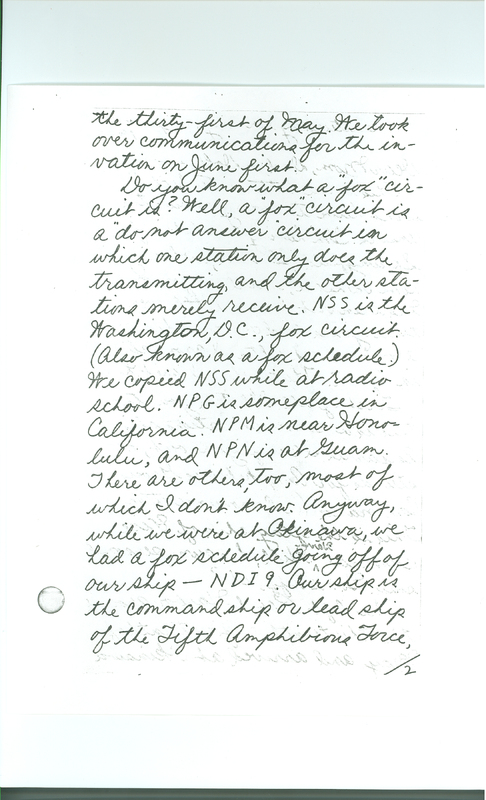 the thirty-first of May. We took
over communications for the in-
vation on June first.
Do you know what a "fox" cir-
cuit is? Well, a "fox" circuit is
a "do not answer" circuit in
which one station only does the
transmitting, and the other sta-
tions merely receive. NSS is the
Washington, D.C., fox circuit.
(Also known as a fox schedule.)
We copied NSS while at radio
school. NPG is someplace in
California. NPM is near Hono-
lulu, and NPN is at Guam.
There are others, too, most of
which I don't know. Anyway,
while we were at Okinawa, we
had a fox schedule going off of
our ship — NDI9. Our ship is
the command ship or lead ship
of the Fifth Amphibious Force,
/2